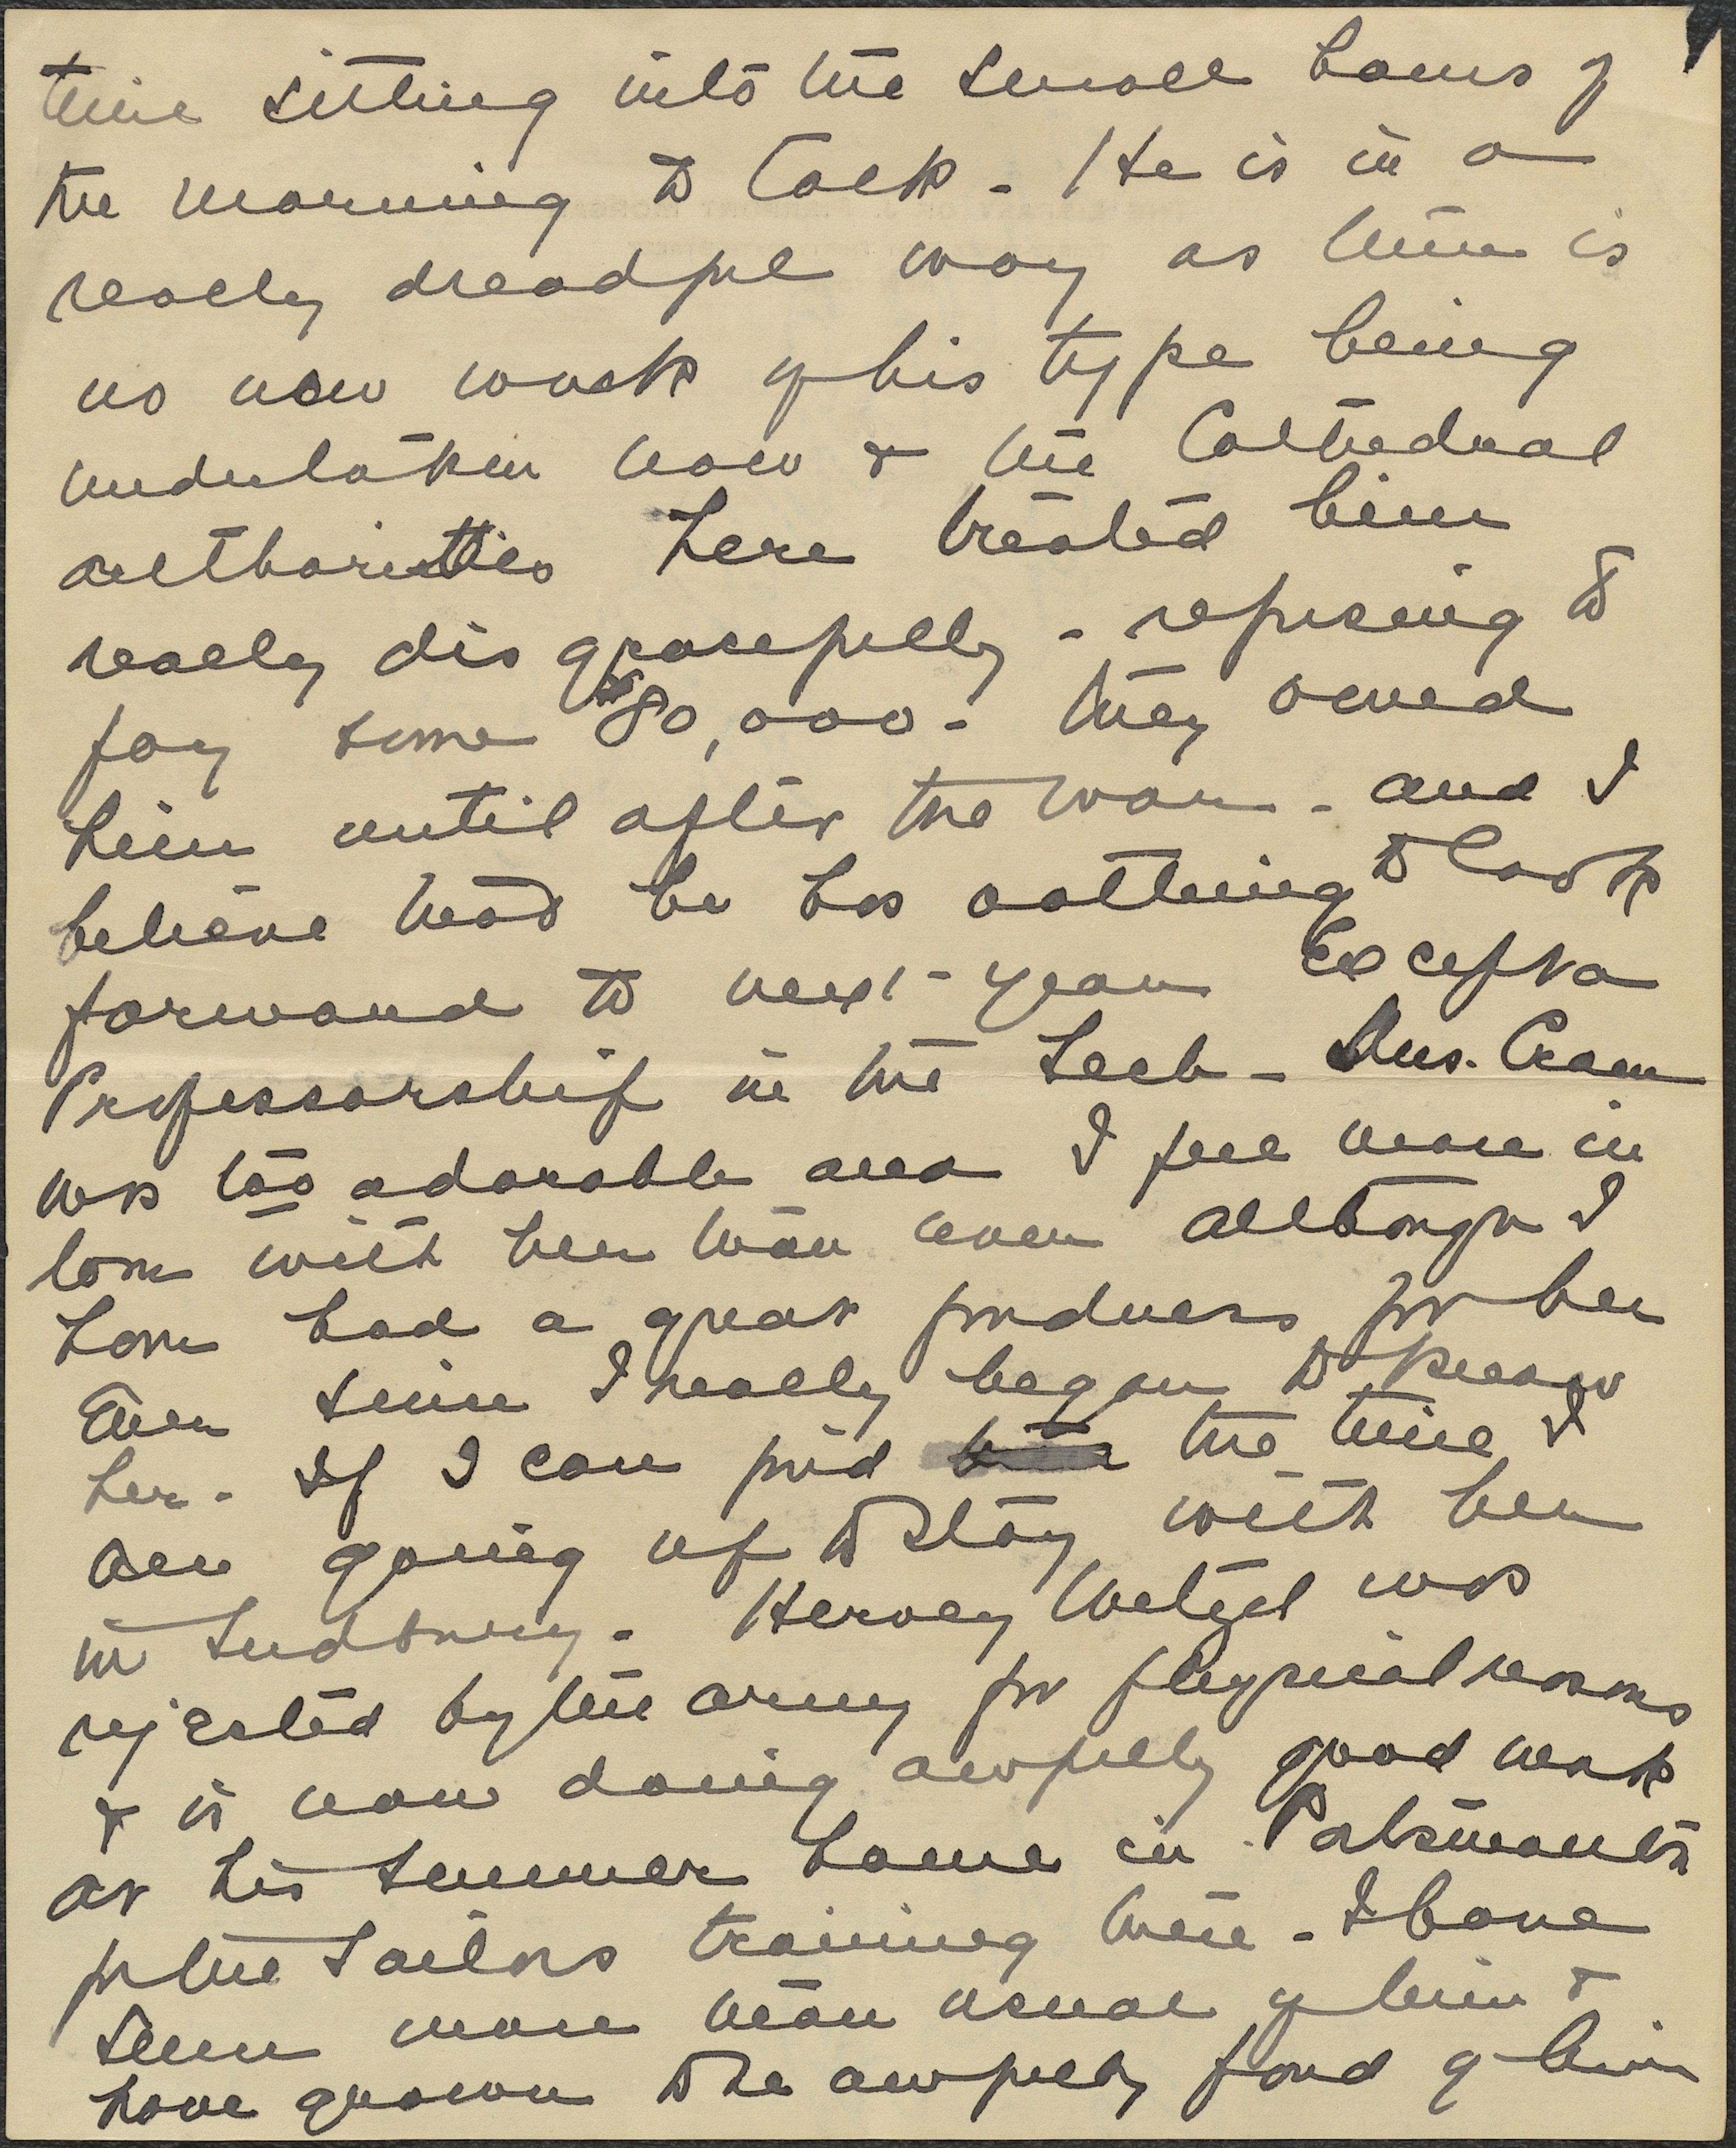 time sitting into the small hours of
the morning to talk - He is in a
really dreadful way as there is
no new work of his type being
undertaken now & the Cathedral
authorities here treated him
really disgracefully - refusing to
pay some $80,000 - they owed
him until after the war - and I
believe that he has nothing to look
forward to next year except a
Professorship in the Tech - Mrs. Cram
was too adorable and I feel more in
love with her than ever although I
have had a great fondness for her
ever since I really began to know
her - If I can find the time I
am going up to stay with her
in Sudbury - Hervey Wetzel was
rejected by the army for physical reasons
& is now doing awfully good work
at his summer home in Portsmouth
for the sailors training there - I have
seen more than usual of him &
have grown to be awfully fond of him